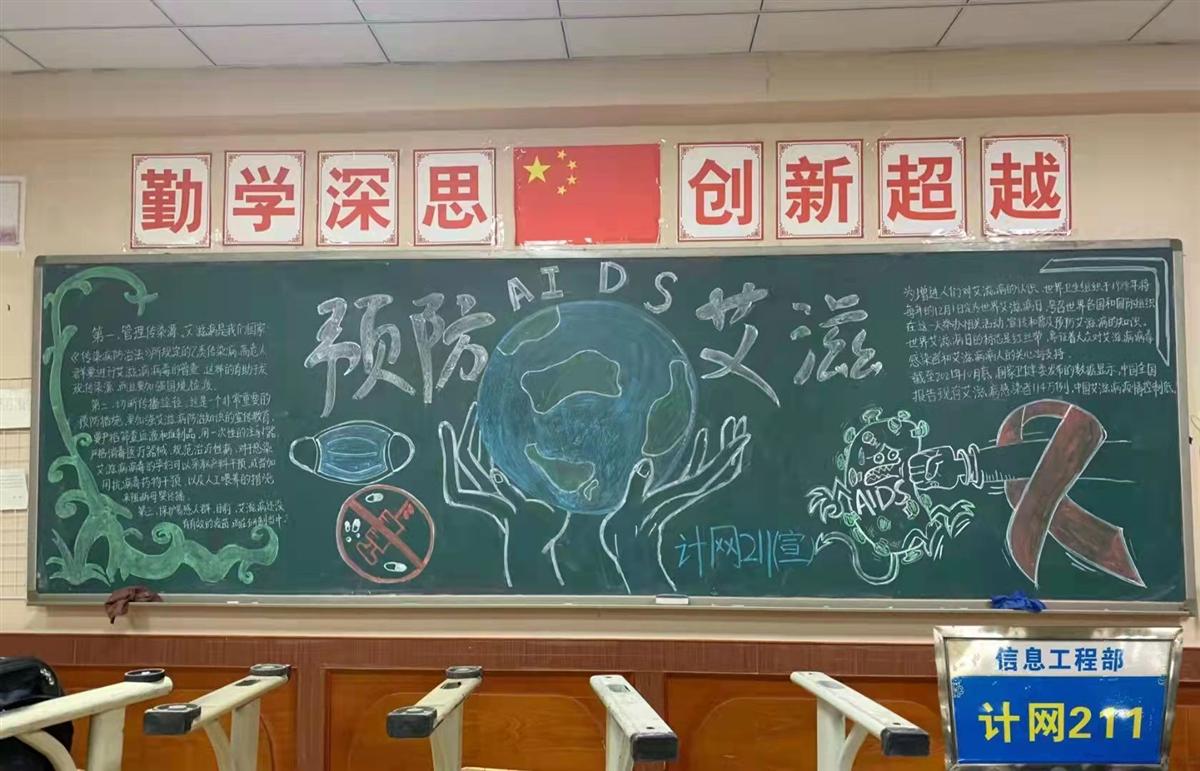 勤学深思 创新超越
预防AIDS艾滋
第一、管理传染源。艾滋病是我们国家
《传染病防治法》所规定的乙类传染病,高危人
群要进行艾滋病病毒的筛查,这样的有助于发
现传染源,而且要加强国境检疫。
第二、切断传播途径,这是个非常重要的
预防措施,要加强艾滋病防治知识的宣传教育,
要严格筛查血液和血制品,用一次性的注射器,
严格消毒医疗器械,规范治疗性病,对于感染
艾滋病病毒的孕妇可以采取产科干预,或者加
用抗病毒药物干预,以及人工喂养的措施
来阻断母婴传播。
第三、保护易感人群,目前,艾滋病还没
有有效的疫苗
为增进人们对艾滋病的认识,世界卫生组织于1988年将
每年的12月1日定为世界艾滋病日,号召世界各国和国际组织
在这一天举办相关活动,宣传和普及预防艾滋病的知识。
世界艾滋病日的标志是红丝带,象征着大众对艾滋病病毒
感染者和艾滋病病人的关心与支持。
截至2021年10月底,国家卫生委发布的数据显示,中国全国
报告现存艾滋病感染者114万例,中国艾滋病疫情控制低
AIDS
计网211宣
信息工程部
计网211